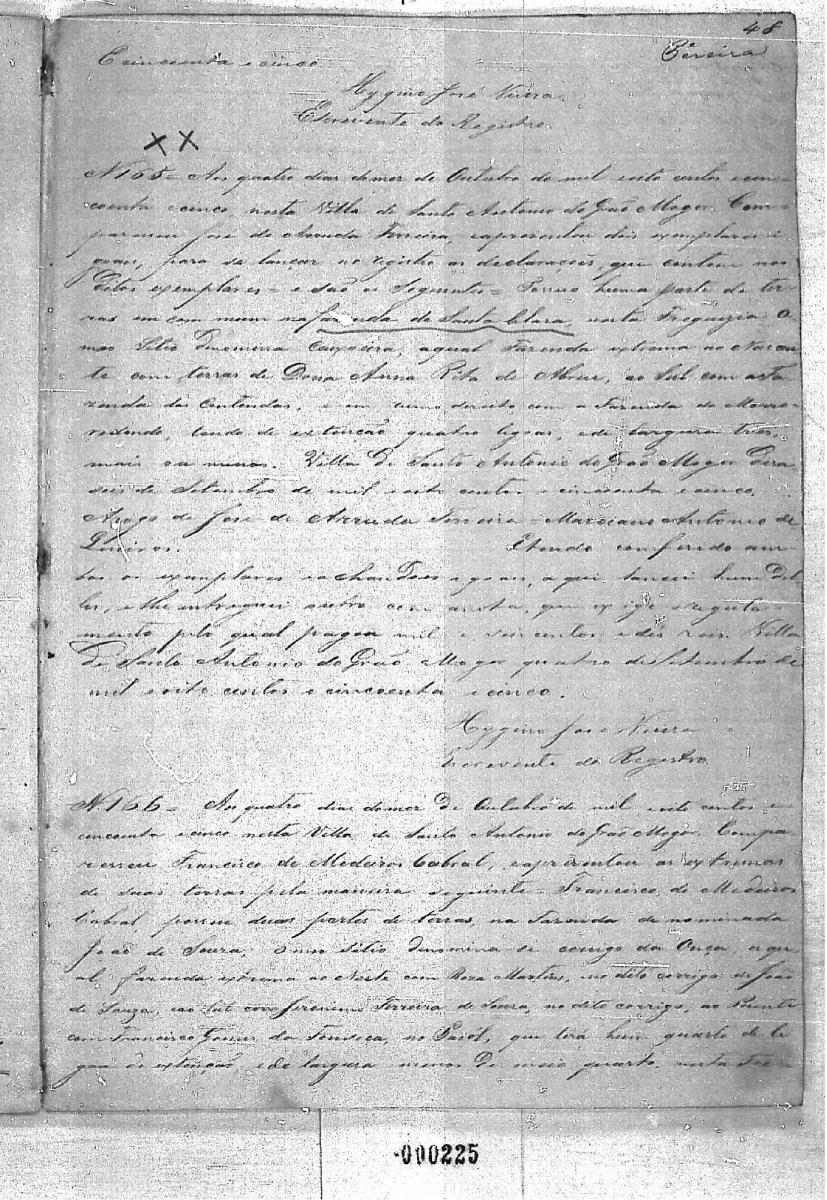 48
Pereira
Cincoenta e cinco
Hygino José Vieira
Escrevente do Registro.
N 165 = Aos quatro dias do mez de Outubro de mil oito centos e cinc
coenta e cinco, nesta Villa de Santo Antonio do Grão Mogor. Com
pareceu José de Arruda Ferreira, eapresentou dois exemplares i
goais, para se lançar no registro as declarações, que contem nos
ditos exemplares = e são os Seguintes = Possuo huma parte de ter
ras em com mum na fazenda da Santa Clara, nesta Freguezia o
meo Sitio denomina Caxoeira, aqual Fazenda extrema ao Nascen
te com terras de Dona Anna Rita de Abreu, ao Sul com a fa
zenda das Contendas, e em rumo direito com a Fazenda do Morro
redondo, tendo de extenção quatro legoas, ede largura tres,
mais ou menos. Villa de Santo Antonio do Grão Mogor deza
seis de Setembro de mil oito centos e cincoenta e cinco.
Arogo de José de Arruda Ferreira = Marciano Antonio de
Queiros. Etendo conferido am
bos os exemplares e achandoos egoais, aqui lancei hum del
les, e lhe entreguei outro com anota, que exige oregula
mento pelo qual pagou mil e seis centos e dez reis. Villa
de Santo Antonio do Grão Mogor quatro de Setembro de
mil e oito centos e cincoenta e cinco.
Hygino José Vieira
Escrevente do Registro
N 166 = Aos quatro dias do mez de Outubro de mil oito centos e
cincoenta e cinco nesta Villa de Santo Antonio do Grão Mogor. Compa
resseu Francisco de Medeiros Cabral, eaprezentou as extremas
de suas terras pela maneira seguinte = Francisco de Medeiros
Cabral possue duas partes de terras, na Fazenda denominada
João de Souza, o meo Sitio denomina se corrigo da Onça, aqu
al fazenda extrema ao Norte com Roza Martins, no dito corrigo de João
de Souza, eao Sul com Jeronimo Ferreira de Souza, no dito corrigo, ao Puente
com Francisco Gomes da Fonseca, no Paiol, que terá hum quarto de le
goa de extenção, ede largura menos de meio quarto, nesta Fre
000225